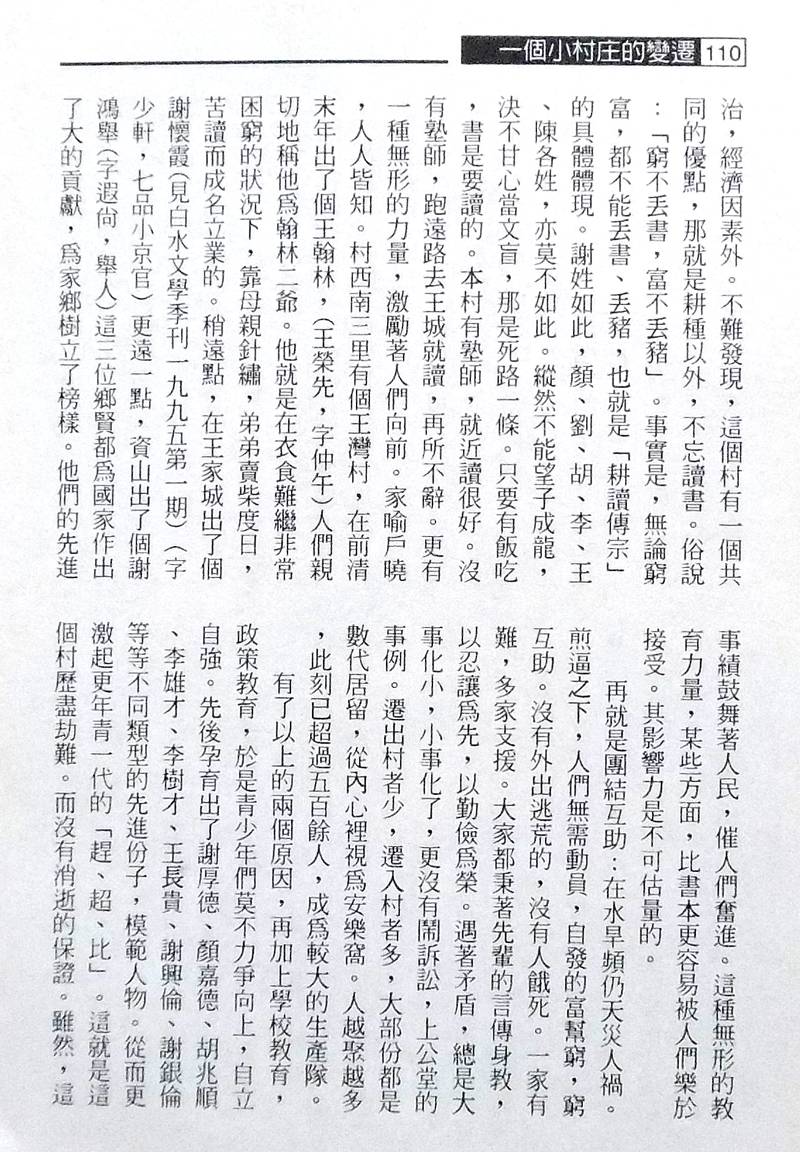 一個小村庄的變遷 110
治，經濟因素外。不難發現，這個村有一個共
同的優點，那就是耕種以外，不忘讀書。俗說
：「窮不丟書，富不丟豬」。事實是，無論窮
富，都不能丟書、丟豬，也就是「耕讀傳宗」
的具體體現。謝姓如此，顏、劉、胡、李、王
、陳各姓，亦莫不如此。縱然不能望子成龍，
決不甘心當文盲，那是死路一條。只要有飯吃
，書是要讀的。本村有塾師，就近讀很好。沒
有塾師，跑遠路去王城就讀，再所不辭。更有
一種無形的力量，激勵著人們向前。家喻戶曉
，人人皆知。村西南三里有個王灣村，在前清
末年出了個王翰林，（王榮先，字仲午）人們親
切地稱他爲翰林二爺。他就是在衣食難繼非常
困窮的狀況下，靠母親針繡，弟弟賣柴度日，
苦讀而成名立業的。稍遠點，在王家城出了個
謝懷霞（見白水文學季刊一九九五第一期）（字
少軒，七品小京官）更遠一點，資山出了個謝
鴻舉（字遐尙，舉人）這三位鄉賢都爲國家作出
了大的貢獻，爲家鄉樹立了榜樣。他們的先進
事績鼓舞著人民，催人們奮進。這種無形的教
育力量，某些方面，比書本更容易被人們樂於
接受。其影響力是不可估量的。
再就是團結互助：在水旱頻仍天災人禍。
煎逼之下，人們無需動員，自發的富幫窮，窮
互助。沒有外出逃荒的，沒有人餓死。一家有
難，多家支援。大家都秉著先輩的言傳身教，
以忍讓爲先，以勤儉爲榮。遇著矛盾，總是大
事化小，小事化了，更沒有鬧訴訟，上公堂的
事例。遷出村者少，遷入村者多，大部份都是
數代居留，從內心裡視爲安樂窩。人越聚越多
，此刻已超過五百餘人，成爲較大的生產隊。
有了以上的兩個原因，再加上學校教育，
政策教育，於是青少年們莫不力爭向上，自立
自強。先後孕育出了謝厚德、顏嘉德、胡兆順
、李雄才、李樹才、王長貴、謝興倫、謝銀倫
等等不同類型的先進份子，模範人物。從而更
激起更年青一代的「趕、超、比」。這就是這
個村歷盡劫難。而沒有消逝的保證。雖然，這